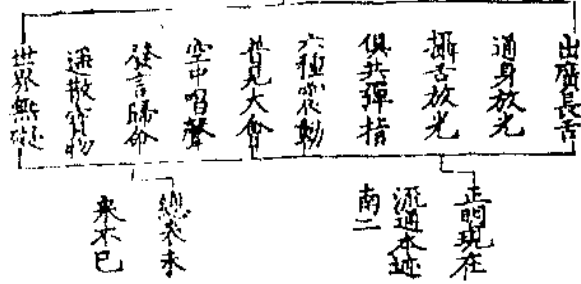 出廣長舌
通身放光
攝舌放光
俱共彈指
六種震動
普見大會
空中唱聲
發言歸命
遙散寶物
世界無礙
正明現在
流通本迹
南二
總表未
來不已